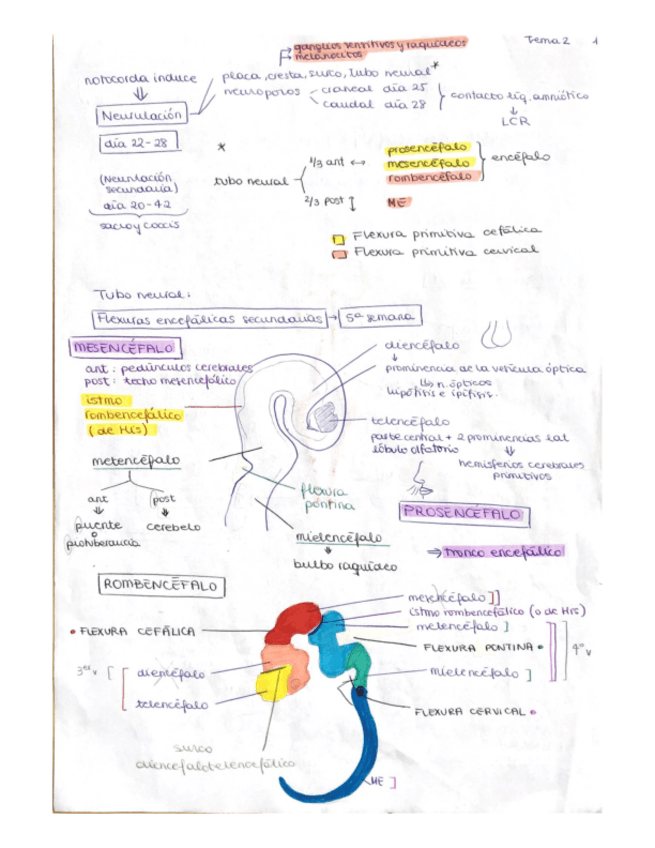 ganglios sensitivos y raquídeos
melanocitos
Tema 2 1
notocorda induce
placa, cresta, surco, tubo neural *
neuroporos
craneal día 25
caudal día 28
contacto líq. amniótico
LCR
Neurulación
día 22-28
(Neurulación
secundaria)
día 20-42
sacro y coccis
*
tubo neural
1/3 ant ↔
prosencéfalo
mesencéfalo
rombencéfalo
encéfalo
2/3 post
ME
Flexura primitiva cefálica
Flexura primitiva cervical
Tubo neural:
Flexuras encefálicas secundarias → 5ª semana
MESENCÉFALO
ant: pedúnculos cerebrales
post: techo mesencefálico
istmo
rombencefálico
(de His)
diencéfalo
prominencia de la vesícula óptica
n. ópticos
hipófisis e epífisis.
telencéfalo
parte central + 2 prominencias lat
lóbulo olfatorio
hemisferios cerebrales
primitivos
metencéfalo
ant
post
puente
o
protuberancia
cerebelo
flexura
pontina
mielencéfalo
bulbo raquídeo
PROSENCÉFALO
⇒ tronco encefálico
ROMBENCÉFALO
mesencéfalo ]]
istmo rombencefálico (o de His)
metencéfalo ]
• FLEXURA CEFÁLICA
FLEXURA PONTINA •
4º v
3er v
diencéfalo
mielencéfalo ]
telencéfalo
FLEXURA CERVICAL •
surco
diencefalotelencefálico
ME ]